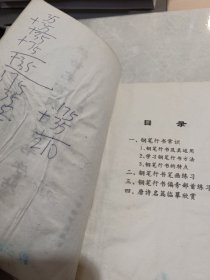 175
+35
210
目 录
一、钢笔行书常识
1.钢笔行书及其运用
2.学习钢笔行书方法
3.钢笔行书的特点
二、钢笔行书笔画练习
三、钢笔行书偏旁部首练习
四、唐诗名篇临摹欣赏